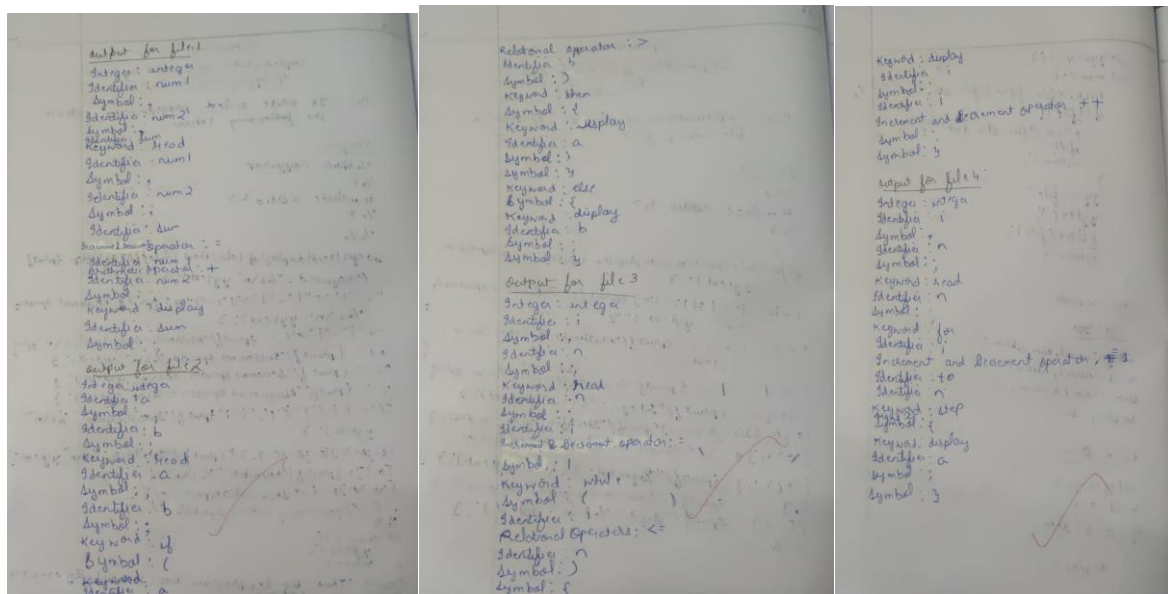 output for file1
Integer : integer
Identifier : num1
Symbol : ,
Identifier : num2
Symbol : ,
Identifier sum
Keyword : read
Identifier : num1
Symbol : ,
Identifier : num2
Symbol : ;
Identifier : sum
operator : =
Identifier : num1
Arithmetic operator : +
Identifier : num2
Symbol : ;
Keyword : display
Identifier : sum
Symbol : .
output for file 2
Integer : integer
Identifier : a
Symbol : ,
Identifier : b
Symbol : ;
Keyword : read
Identifier : a
Symbol : ,
Identifier : b
Symbol : ;
Keyword : if
Symbol : (
Keyword
Identifier a
Relational operator : >
Identifier : b
Symbol : )
Keyword : then
Symbol : {
Keyword : display
Identifier : a
Symbol : ;
Symbol : }
Keyword : else
Symbol : {
Keyword : display
Identifier : b
Symbol : ;
Symbol : }
output for file 3
Integer : integer
Identifier : i
Symbol : ,
Identifier : n
Symbol : ;
Keyword : read
Identifier : n
Symbol : ;
Identifier : i
Increment & Decrement operator : =
Symbol : 1
Keyword : while
Symbol : ( )
Identifier : i
Relational Operators : <=
Identifier : n
Symbol : )
Symbol : {
Keyword : display
Identifier : i
Symbol : ;
Identifier : i
Increment and Decrement operator : ++
Symbol : ;
Symbol : }
output for file 4 :
Integer : integer
Identifier : i
Symbol : ,
Identifier : n
Symbol : ;
Keyword : read
Identifier : n
Symbol :
Keyword : for
Identifier : i
Increment and Decrement operator :
Identifier : to
Identifier : n
Keyword : step
Symbol : {
Keyword : display
Identifier : a
Symbol : ;
Symbol : }